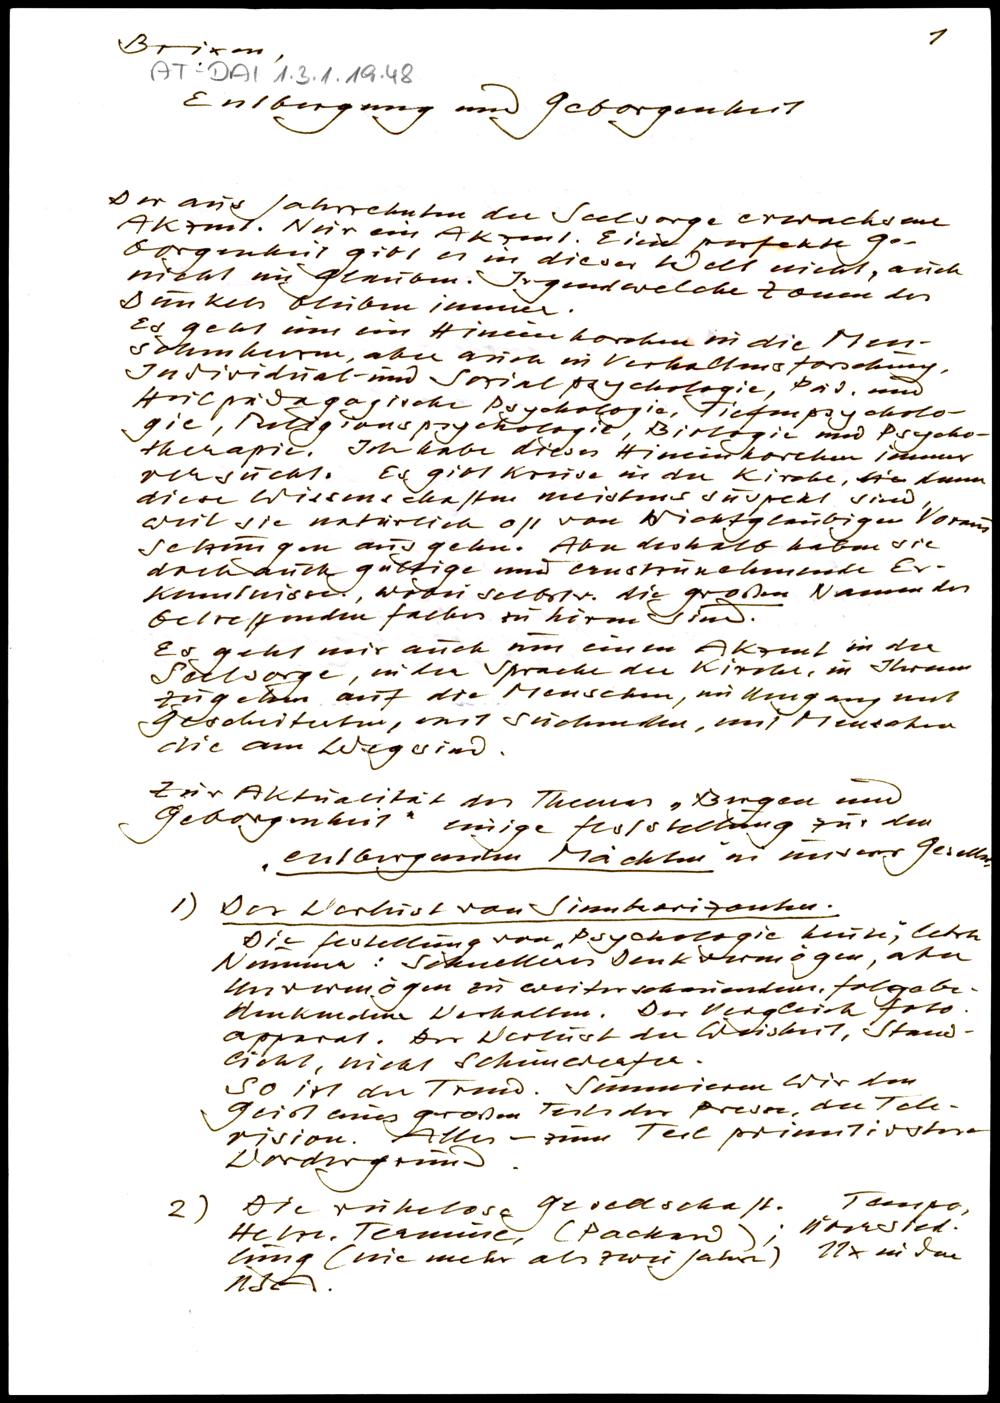 1
Brixen,
AT-DAI 1.3.1.19.48
Entbergung und Geborgenheit
Der aus Jahrzehnten der Seelsorge erwachsene
Akzent. Nur ein Akzent. Eine perfekte Ge-
borgenheit gibt es in dieser Welt nicht, auch
nicht im Glauben. Irgendwelche Zonen des
Dunkels bleiben immer.
Es geht um ein Hineinhorchen in die Men-
schenherzen, aber auch in Verhaltensforschung,
Individual- und Sozialpsychologie, Päd. und
Heilpädagogische Psychologie, Tiefenpsycholo-
gie, Religionspsychologie, Biologie und Psycho-
therapie. Ich habe dieses Hineinhorchen immer
versucht. Es gibt Kreise in der Kirche, denen
diese Wissenschaften meistens suspekt sind,
weil sie natürlich oft von Nichtgläubigen Voraus
setzungen ausgehen. Aber deshalb haben sie
doch auch gültige und ernstzunehmende Er-
kenntnisse, wobei selbstv. die großen Namen des
betreffenden Faches zu hören sind.
Es geht mir auch um einen Akzent in der
Seelsorge, in der Sprache der Kirche, in Ihrem
zugehen auf die Menschen, im Umgang mit
Gescheiterten, mit Suchenden, mit Menschen
die am Weg sind.
Zur Aktualität des Themas „Bergen und
Geborgenheit" einige Feststellung zur den
„entbergenden Mächten" in unserer Gesells.
1) Der Verlust von Sinnhorizonten.
Die Festellung von „Psychologie heute", letzte
Nummer: Schnelleres Denkvermögen, aber
Unvermögen zu weiterschauendem, folgebe-
denkendem Verhalten. Der Vergleich Foto-
apparat. Der Verlust der Weisheit, Stand-
licht, nicht Scheinwerfer.
So ist der Trend. Summieren wir den
Geist eines großen Teils der Presse, der Tele-
vision. Alles – zum Teil primitivster
Vordergrund.
2) Die ruhelose Gesellschaft. Tempo,
Hetze, Termine, (Packard); Übersied-
lung (nie mehr als zwei Jahre) 11x in den
USA.